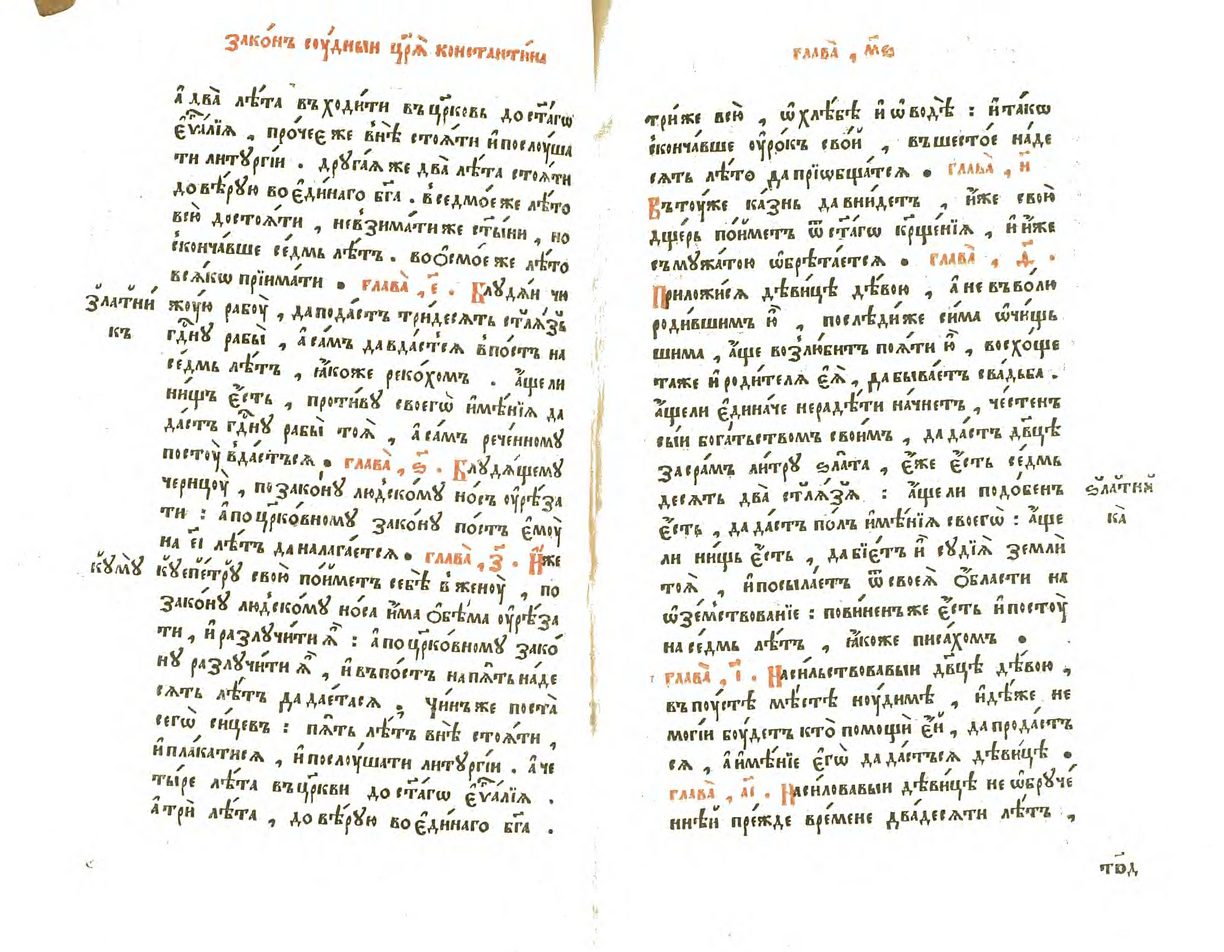 Зако́нъ сѹ́дныи цр҃ѧ̀ константи́на
а҆ два̀ лѣ́та въходи́ти въ цр҃ковь до ст҃а́гѡ
є҆ѵⷢ҇а́лїѧ , про́чеє же внѣ̀ стоѧ́ти и҆ послѹша
ти литѹргі́и . дрѹга́ѧ же два̀ лѣ́та стоѧ́ти
до вѣ́рѹю во є҆ди́наго бг҃а . в седмо́е же лѣ́то
всю̀ достоѧ́ти , не взима́ти же ст҃ы́ни , но
сконча́вше се́дмь лѣ́тъ . во ѻ҆смо́е же лѣ́то
всѧ́кѡ прїима́ти • глава̀ , є҃ . Блѹдѧ́и чю
жо́ую рабоу̀ , да пода́стъ три́десѧть стлѧ́зь
гд҃нѹ рабы̀ , а҆ са́мъ да вда́стсѧ в по́стъ на
се́дмь лѣ́тъ , ꙗ҆́коже реко́хомъ . а҆́щели
ни́щъ є҆́сть , проти́вѹ своегѡ̀ и҆мѣ́нїѧ да
да́стъ гд҃нѹ рабы̀ тоѧ̀ , а҆ са́мъ рече́нномѹ
постоу̀ вда́стьсѧ • глава̀ , ѕ҃ . Блѹдѧ́щемѹ
черни́цоу , по зако́нѹ людско́мѹ но́съ ѹ҆рѣ́за
ти : а҆ по цр҃ко́вномѹ зако́нѹ по́стъ є҆моу̀
на є҃і лѣ́тъ да налага́етсѧ • глава̀ , з҃ . И҆́же
кѹепе́трѹ свою̀ по́йметъ себѣ̀ в женоу̀ , по
зако́нѹ людско́мѹ но́са и҆́ма ѻ҆бѣ́ма ѹ҆рѣ́за
ти , и҆ разлѹчи́ти ѧ҆̀ : а҆ по цр҃ко́вномѹ зако́
нѹ разлѹчи́ти ѧ҆̀ , и҆ въ по́стъ на пѧ́ть на́де
сѧть лѣ́тъ да да́етсѧ . чи́нъ же поста̀
сегѡ̀ си́цевъ : пѧ́ть лѣ́тъ внѣ̀ стоѧ́ти ,
и҆ пла́катисѧ , и҆ послѹ́шати литѹргі́и . а҆ че
ты́ре лѣ́та въ цр҃кви до ст҃а́гѡ є҆ѵⷢ҇а́лїѧ .
а҆ трѝ лѣ́та , до вѣ́рѹю во є҆ди́наго бг҃а .
Златни́
къ
кѹмѹ̀
глава̀ , м҃ѳ
три́ же всю̀ , ѡ҆ хлѣ́бѣ и҆ ѡ҆ водѣ̀ : и҆ та́кѡ
скончавше ѹ҆ро́къ сво́й , въ шесто́е на́де
сѧть лѣ́то да прїѡбща́тсѧ • глава̀ , и҃
Въ тоу́же ка́знь да вни́детъ , и҆́же свою̀
дще́рь по́йметъ ѿ ст҃а́гѡ крⷭ҇ще́нїѧ , и҆ и҆́же
съ мѹжа́тою ѡ҆брѣ́таетсѧ • глава̀ , ѳ҃ .
Приложи́сѧ дѣви́цѣ дѣвою , а҆ не въ во́лю
роди́вшимъ ю҆̀ , послѣди́же си́ма ѡ҆чи́щь
шима , а҆́ще возлю́битъ поѧ́ти ю҆̀ , восхо́ще
таже и҆ роди́телѧ є҆ѧ̀ , да быва́етъ сва́дьба .
а҆́щели є҆дина́че нерадѣ́ти на́чнетъ , че́стенъ
сы́и бога́тьствомъ свои́мъ , да да́стъ дв҃цѣ
за сра́мъ ли́трѹ ѕла́та , є҆́же є҆́сть се́дмь
десѧтъ два̀ стлѧ́зѧ : а҆́щели подо́бенъ
є҆́сть , да да́стъ по́лъ и҆мѣ́нїѧ своегѡ̀ : а҆́ще
ли ни́щь є҆́сть , да бїе́тъ и҆̀ сѹдїѧ̀ землѝ
тоѧ̀ , и҆ посыла́етъ ѿ своеѧ̀ ѻ҆́бласти на
ѡ҆зе́мствованїе : пови́ненъ же є҆́сть и҆ постоу̀
на се́дмь лѣ́тъ , ꙗ҆́коже писа́хомъ •
глава̀ , і҃ . Наси́льствовавыи дв҃цѣ дѣ́вою ,
въ поу́стѣ мѣ́стѣ ноу́димѣ , и҆дѣ́же не
могі́и боу́детъ кто̀ помощѝ є҆́й , да прода́стъ
сѧ , а҆ и҆мѣ́нїе є҆гѡ̀ да да́стьсѧ дѣви́цѣ •
глава̀ , а҃і . Наси́ловавыи дѣви́цѣ не ѡ҆брѹче́
ннѣ́й пре́жде вре́мене два́десѧти лѣ́тъ ,
ѕлатни́
ка̀
то҃д